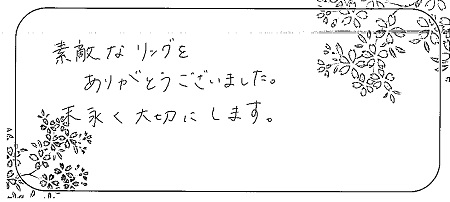 素敵なリングを
ありがとうございました。
末永く大切にします。